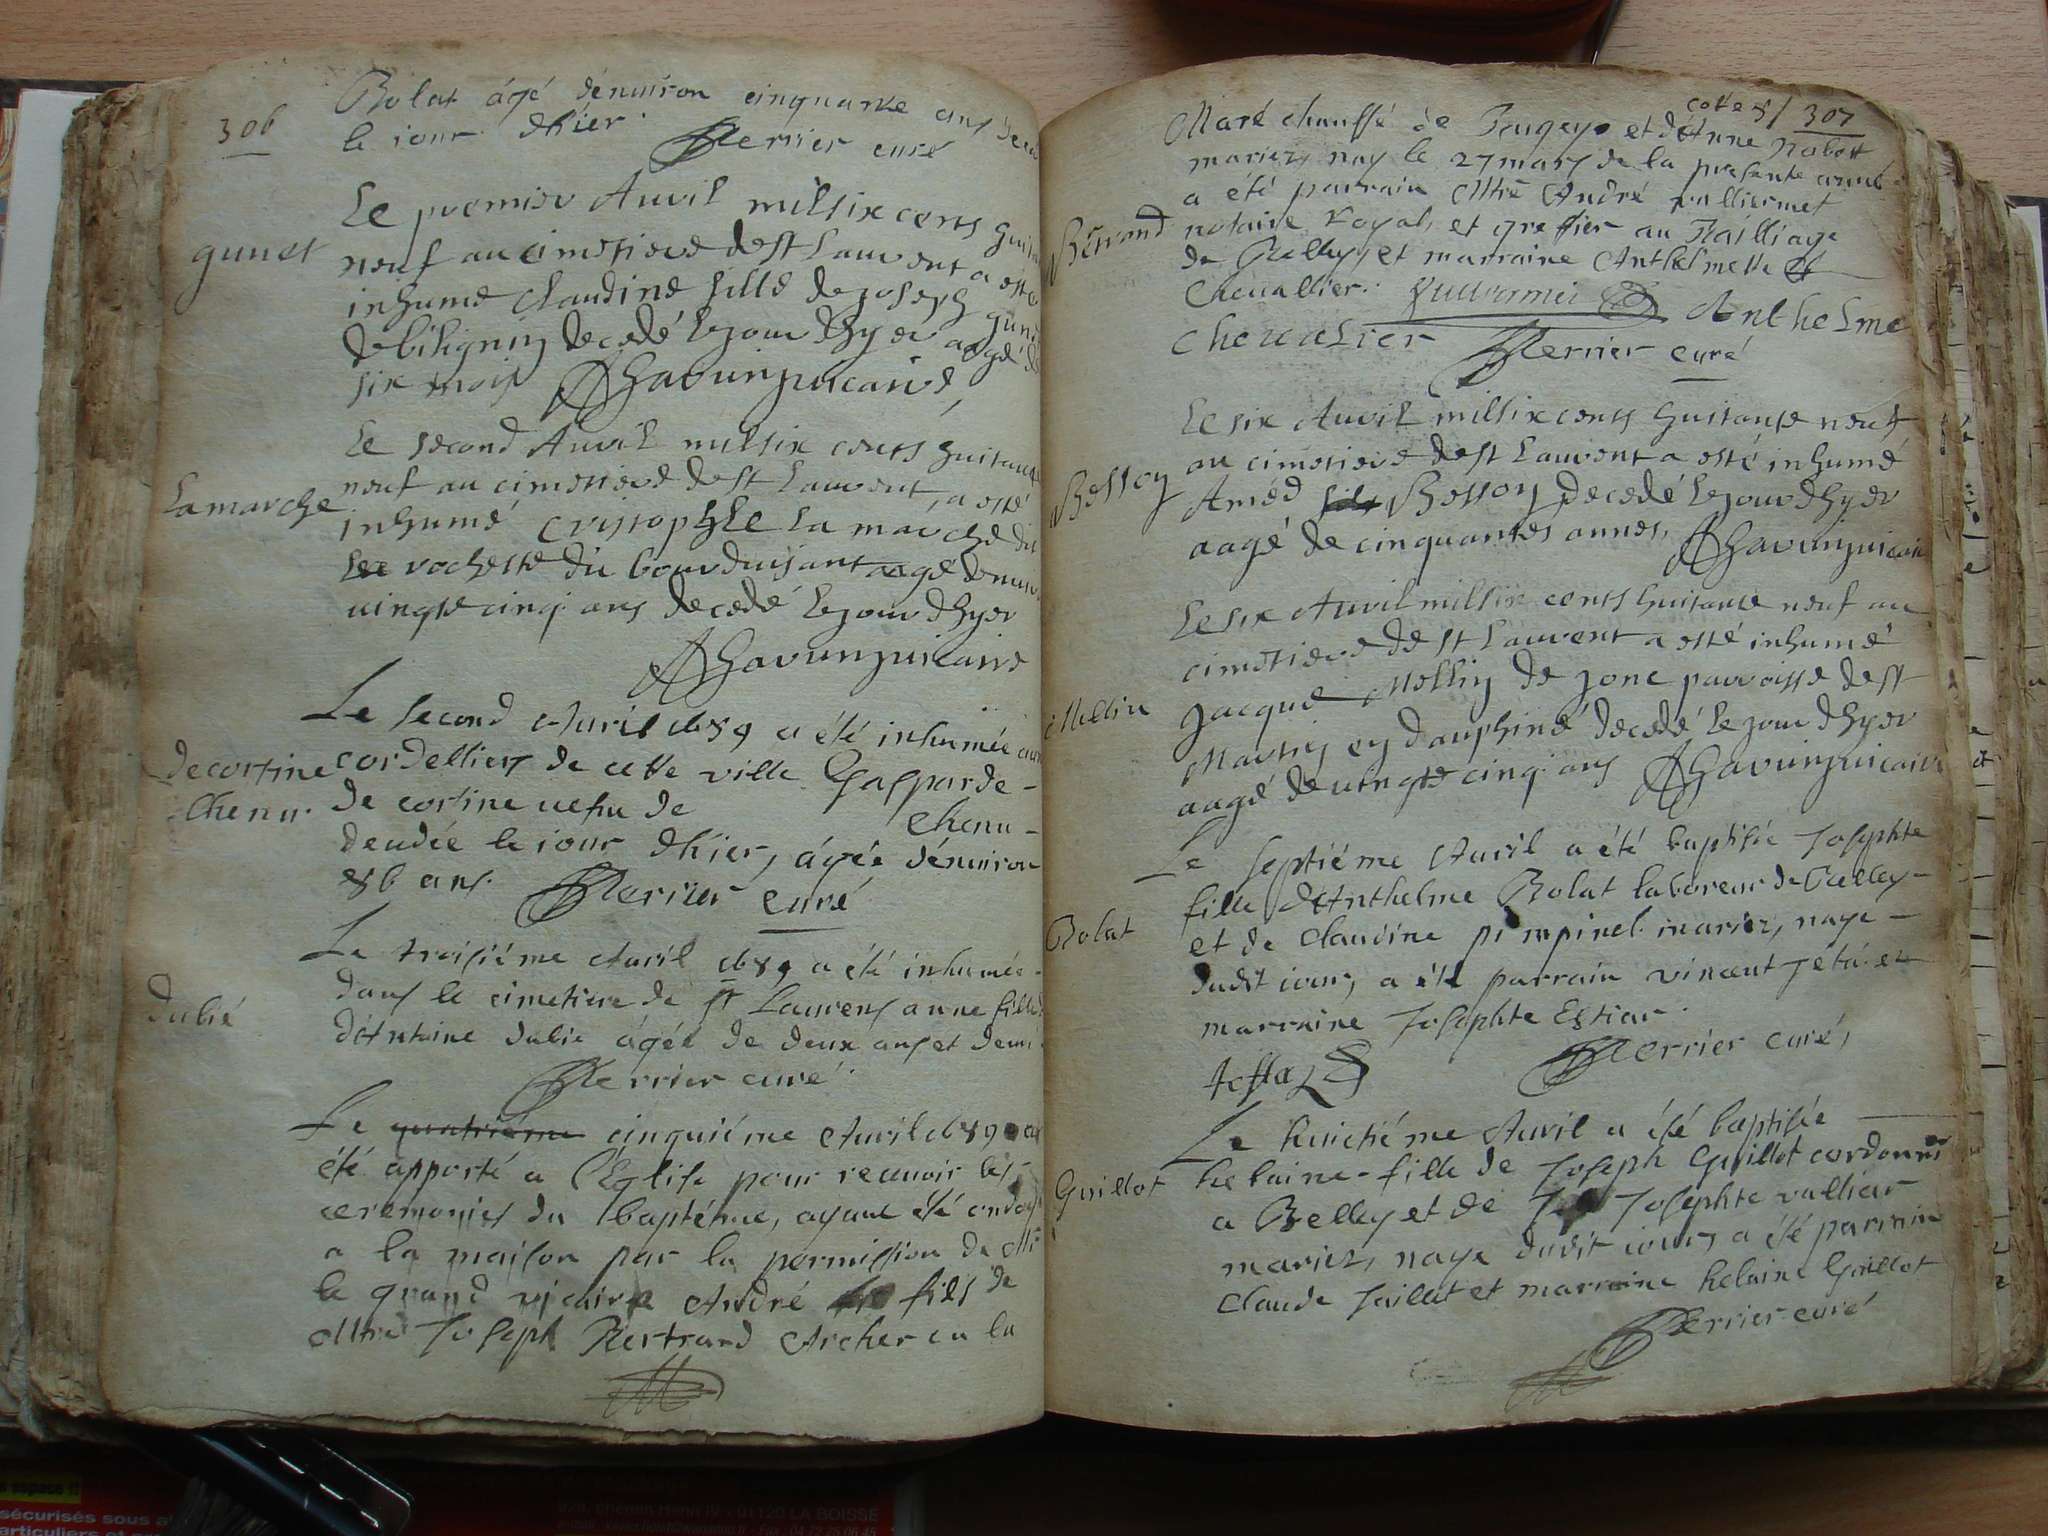 306
Bolat âgé dénuiron cinquante ans
le iour dhier. Perrier curé
Le premier Auvil mil six cents huit
gunet
neuf au cimetiere de st Lauvent a esté
inhume Claudine fille de Joseph gunet
de biligniny decedé le jour dhyer aagé de
six mois
Le second Auvil mil six cents huitante
Lamarche
neuf au cimetiere de st Lauvent a esté
inhumé Cristophle La marche dit
rochette du bourduisant aagé denuiron
uingte cinq ans decedé le jour dhyer
Le second Auril 1689 a été inhumée aux
de cortine
chenu.
cordelliers de cette ville Gasparde -
de cortine uefue de chenu -
décédée le iour dhier, âgée dénuiron
86 ans. Perrier curé
Le troisiéme Auril 1689 a été inhumée
dubié
dans le cimetiere de st Laurens anne fille
d'Antoine dubié âgée de deux ans et demi
Perrier curé.
Le quatriéme cinquiéme Auril 1689 a
été apporté a l'Eglise pour receuoir les
ceremonies du baptéme, ayant été ondoyé
a la maison par la permission de Mr
le grand vicaire André fils de
Mtre Joseph Bertrand Archer en la
cottes / 307
Maréchaussé de Beugey et d'Anne Robert
mariez, nay le 27 mars de la presente année
a été parrain Mtre André uulliermet
Bertrand
notaire Royal, et greffier au Bailliage
de Belley, et marraine Anthelmette
Cheuallier. Vuilliermet Anthelme
chevalier Perrier curé
Le six Auvil mil six cents huitante neuf
au cimetiere de st Lauvent a esté inhumé
Bessoy
Amed fils Bessoy decedé le jour dhyer
aagé de cinquantes annes,
Le six Auvil mil six cents huitante neuf au
cimetiere de st Lauvent a esté inhumé
Mellin
Jacque Melliy de Jone parroisse de st
Martiy ey dauphiné decedé le jour dhyer
aagé de uingte cinq ans
Le septiéme Auril a été baptisée Josephte
fille d'Anthelme Bolat laboreur de Belley -
Bolat
et de Claudine pimpinel mariez, naye -
dudit iour, a été parrain vincent Jeta et
marraine Josephte Estiar.
Perrier curé,
Le huictiéme Auril a été baptisée
Guillot
helaine - fille de Joseph Guillot cordonnier
a Belley et de Josephte vullier
mariez, naye dudit iour, a été parrain
Claude Juillet et marraine helaine Guillot
Perrier curé